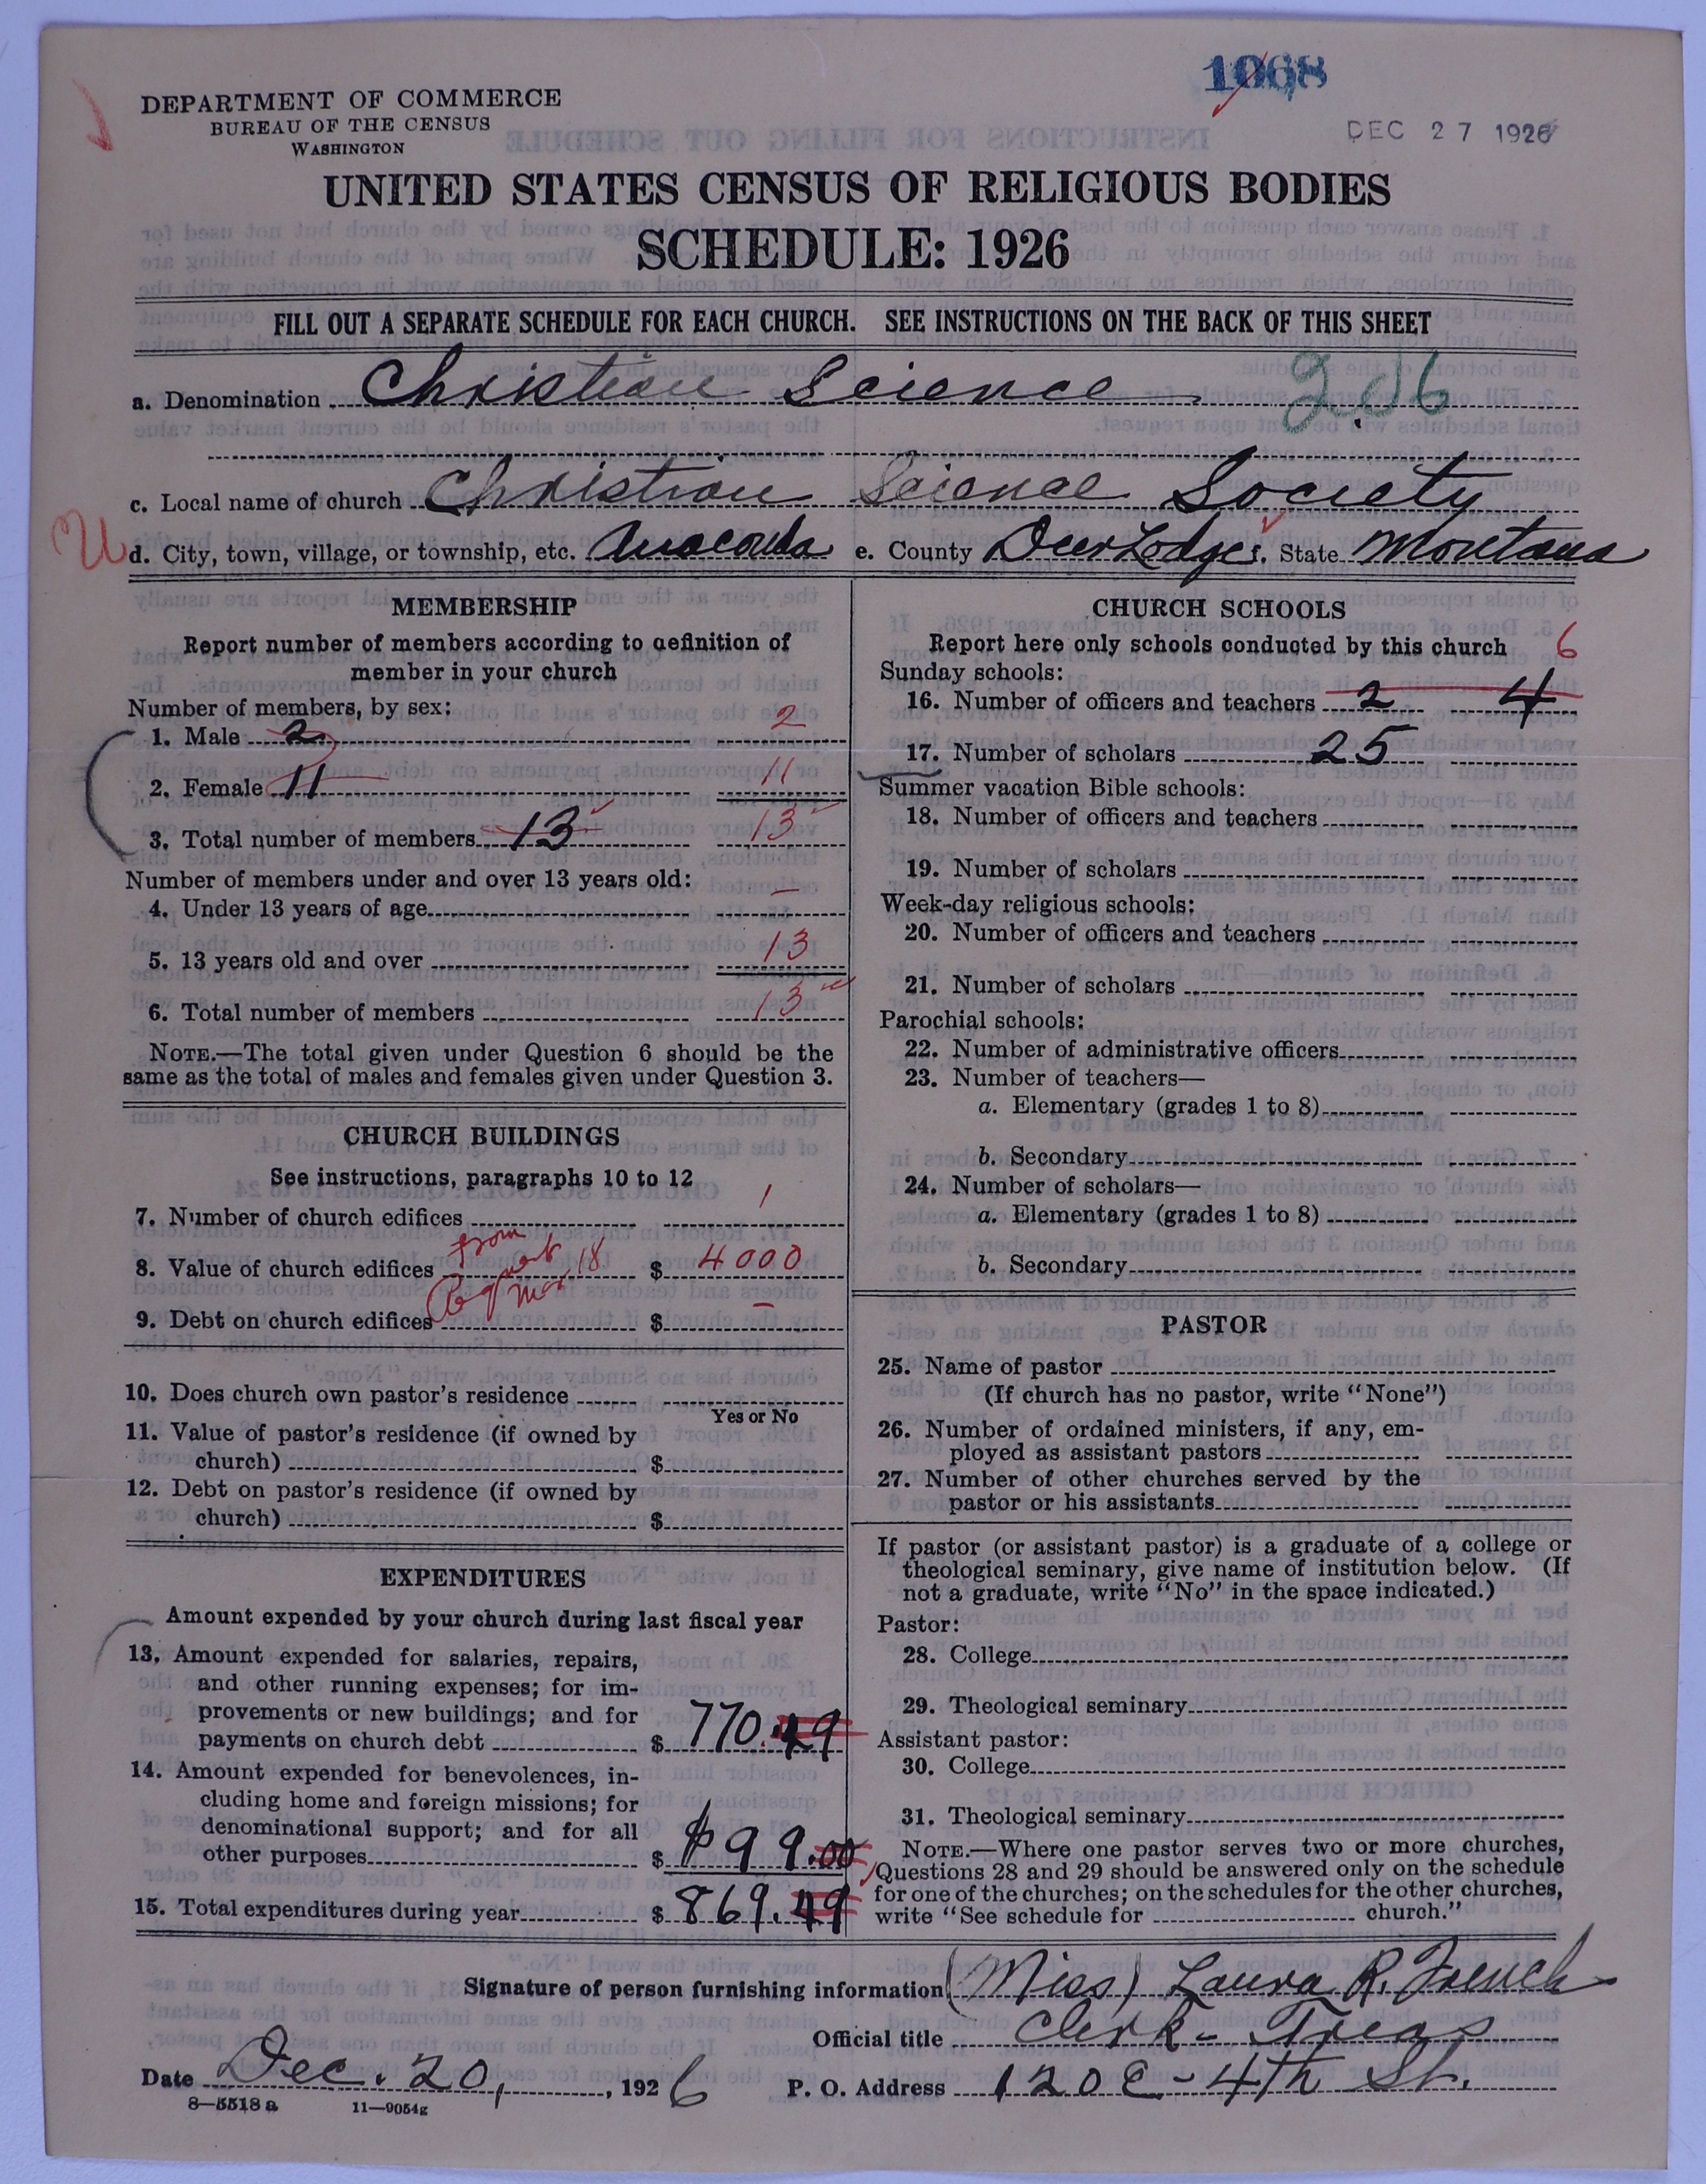 1068
DEC 27 1926
DEPARTMENT OF COMMERCE
BUREAU OF THE CENSUS
WASHINGTON
UNITED STATES CENSUS OF RELIGIOUS BODIES
SCHEDULE: 1926
FILL OUT A SEPARATE SCHEDULE FOR EACH CHURCH. SEE INSTRUCTIONS ON THE BACK OF THIS SHEET
a. Denomination Christian Science 206
c. Local name of church Christian Science Society
U d. City, town, village, or township, etc. Anaconda e. County Deer Lodge f. State Montana
MEMBERSHIP
Report number of members according to definition of
member in your church
Number of members, by sex:
1. Male 2 2
2. Female 11 11
3. Total number of members 13 13
Number of members under and over 13 years old:
4. Under 13 years of age —
5. 13 years old and over 13
6. Total number of members 13
NOTE.—The total given under Question 6 should be the
same as the total of males and females given under Question 3.
CHURCH BUILDINGS
See instructions, paragraphs 10 to 12
7. Number of church edifices 1
from
8. Value of church edifices 18 $ 4000
9. Debt on church edifices $ —
10. Does church own pastor's residence
Yes or No
11. Value of pastor's residence (if owned by
church) $
12. Debt on pastor's residence (if owned by
church) $
EXPENDITURES
Amount expended by your church during last fiscal year
13. Amount expended for salaries, repairs,
and other running expenses; for im-
provements or new buildings; and for
payments on church debt $ 770.49
14. Amount expended for benevolences, in-
cluding home and foreign missions; for
denominational support; and for all
other purposes $ $99.00
15. Total expenditures during year $ 869.49
CHURCH SCHOOLS
Report here only schools conducted by this church 6
Sunday schools:
16. Number of officers and teachers 2 4
17. Number of scholars 25
Summer vacation Bible schools:
18. Number of officers and teachers
19. Number of scholars
Week-day religious schools:
20. Number of officers and teachers
21. Number of scholars
Parochial schools:
22. Number of administrative officers
23. Number of teachers—
a. Elementary (grades 1 to 8)
b. Secondary
24. Number of scholars—
a. Elementary (grades 1 to 8)
b. Secondary
PASTOR
25. Name of pastor
(If church has no pastor, write "None")
26. Number of ordained ministers, if any, em-
ployed as assistant pastors
27. Number of other churches served by the
pastor or his assistants
If pastor (or assistant pastor) is a graduate of a college or
theological seminary, give name of institution below. (If
not a graduate, write "No" in the space indicated.)
Pastor:
28. College
29. Theological seminary
Assistant pastor:
30. College
31. Theological seminary
NOTE.—Where one pastor serves two or more churches,
Questions 28 and 29 should be answered only on the schedule
for one of the churches; on the schedules for the other churches,
write "See schedule for church."
Signature of person furnishing information (Miss) Laura R. French
Official title Clerk - Treas
Date Dec. 20, 1926 P. O. Address 120 E - 4th St.
8—5518 a 11—9054g